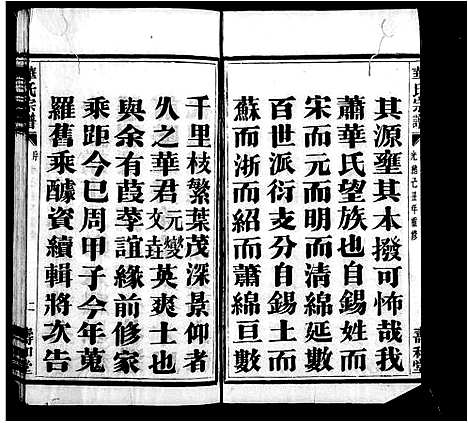 其源壅其本撥可怖哉我
蕭華氏望族也自錫姓而
宋而元而明而清綿延數
百世派衍支分自錫土而
蘇而浙而紹而蕭綿亘數
千里枝繁葉茂深景仰者
久之華君元燮文垚英爽士也
與余有葭莩誼緣前修家
乘距今已周甲子今年蒐
羅舊乘醵資續輯將次告
華氏宗譜
序
二
壽和堂